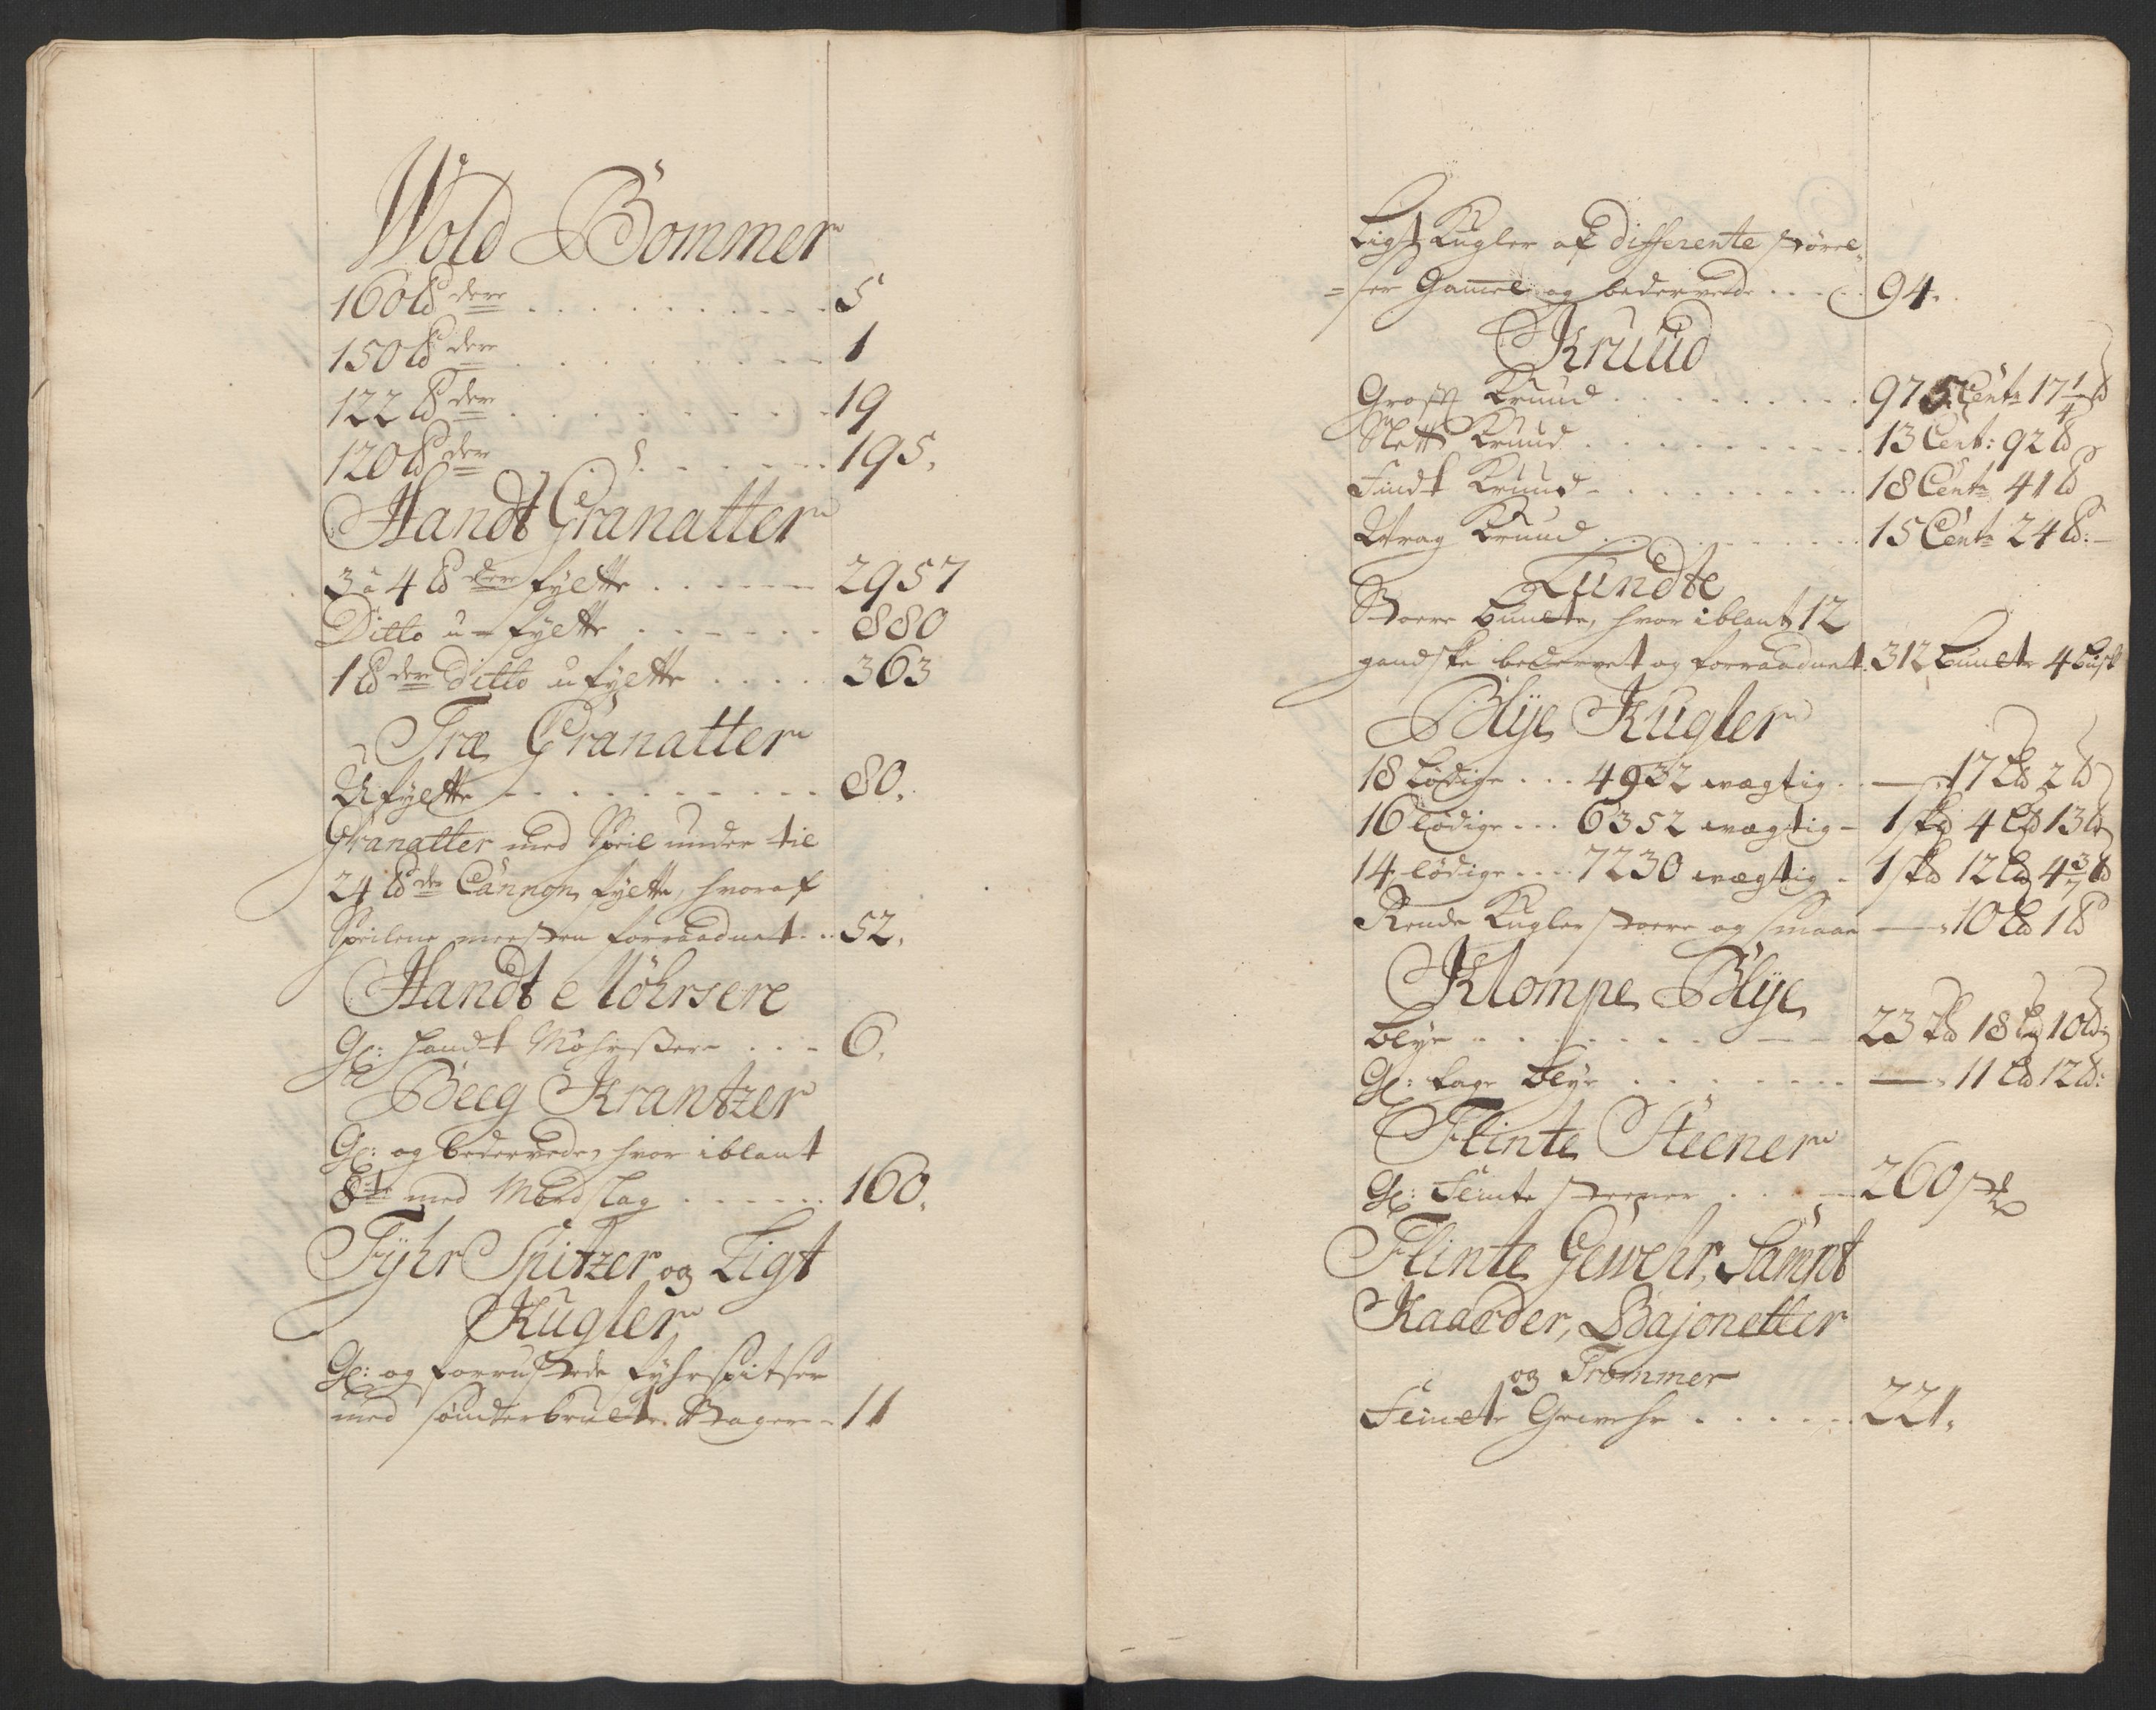 Wold Bommer
160 ℔dere . . . . . . . . . 5
150 ℔dere . . . . . . . . . 1
122 ℔dere . . . . . . . . . 19
120 ℔dere . . . . . . . . . 195.
Handt Granatter
3 à 4 ℔dere fyelte . . . . . . 2957
Ditto u-fyelte . . . . . . 880
1 ℔dere Ditto ufyelte . . . . 363
Træ Granatter
Ufyelte . . . . . . . . . . 80.
Granatter med Speil under til
24 ℔der Cannon, fyelte, hvoraf
Speilene meesten forraadnet . . 52.
Handt Möhrsere
Gl: Handt Möhrsere . . . 6.
Beeg Krantzer
Gl: og bedervede, hvor iblant
8te med Mordslag . . . . . . 160.
Fyhr Spitzer og Ligt
Kugler
Gl: og forrustede fyhrspitser
med sönderbrudte Stager - 11
Ligt Kugler af differente störel-
=ser Gamel og bedervede . . . . 94.
Kruud
Groft Kruud . . . . . . . . . 975 Centn 17 1/4 ℔
Slett Kruud . . . . . . . . . 13 Cent: 92 ℔
Findt Kruud . . . . . . . . . 18 Centn 41 ℔
Wrag Kruud . . . . . . . . . 15 Centn 24 ℔: —
Lundte
Stoere Bundte, hvor iblant 12
gandske bedervet og forraadnet . 312 Bundte 4 Busk
Blye Kugler
18 lödige . . . 4932 wægtig . — 17 L℔ 2 ℔
16 lödige . . . 6352 wægtig - 1 sk℔ 4 L℔ 13 ℔
14 lödige . . . . 7230 wægtig - 1 sk℔ 12 L℔ 4 3/4 ℔
Rende Kugler stoere og smaae — 10 L℔ 1 ℔
Klompe Blye
Blye . . . . . . . . . 23 sk℔ 18 L℔ 10 ℔
Gl: tage Blye . . . . . . . — 11 L℔ 12 ℔:
Flinte Steener
Gl: Flinte steener . . . — 260 stk
Flinte Gewehr, Sampt
Kaarder, Bajonetter
og Trommer
Flindte Gewehr . . . . . . 221.